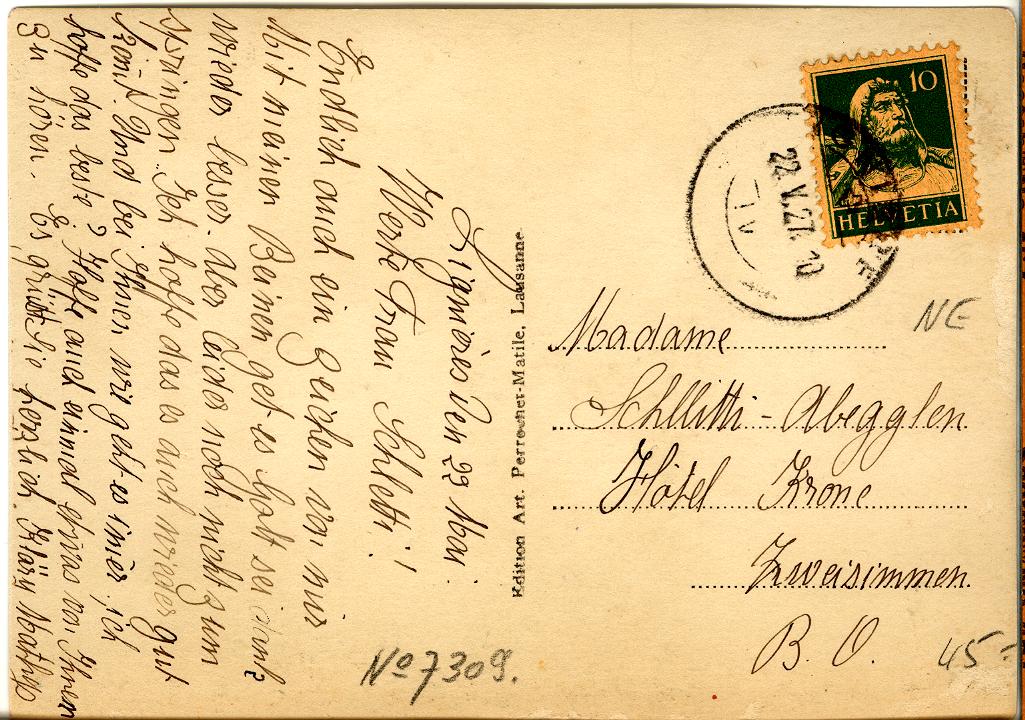 Lignières den 22 Mai.
Werte Frau Schletti!
Endlich auch ein Zeichen von mir
Mit meinen Beinen get es Gott sei dank
wieder besser. aber leider noch nicht zum
springen. Ich hoffe das es auch wieder gut
komt. Und bei Ihnen wie geht es imer, ich
hoffe das beste? Hoffe auch einmal etwas von Ihnen
zu hören. Es grüßt Sie herzlich. Kläry
Edition Art. Perrochet-Matile, Lausanne
10
HELVETIA
22.V.27. 10
NE
Madame
Schllitti-Abegglen
Hôtel Krone
Zweisimmen
B. O.
45-
No 7309.